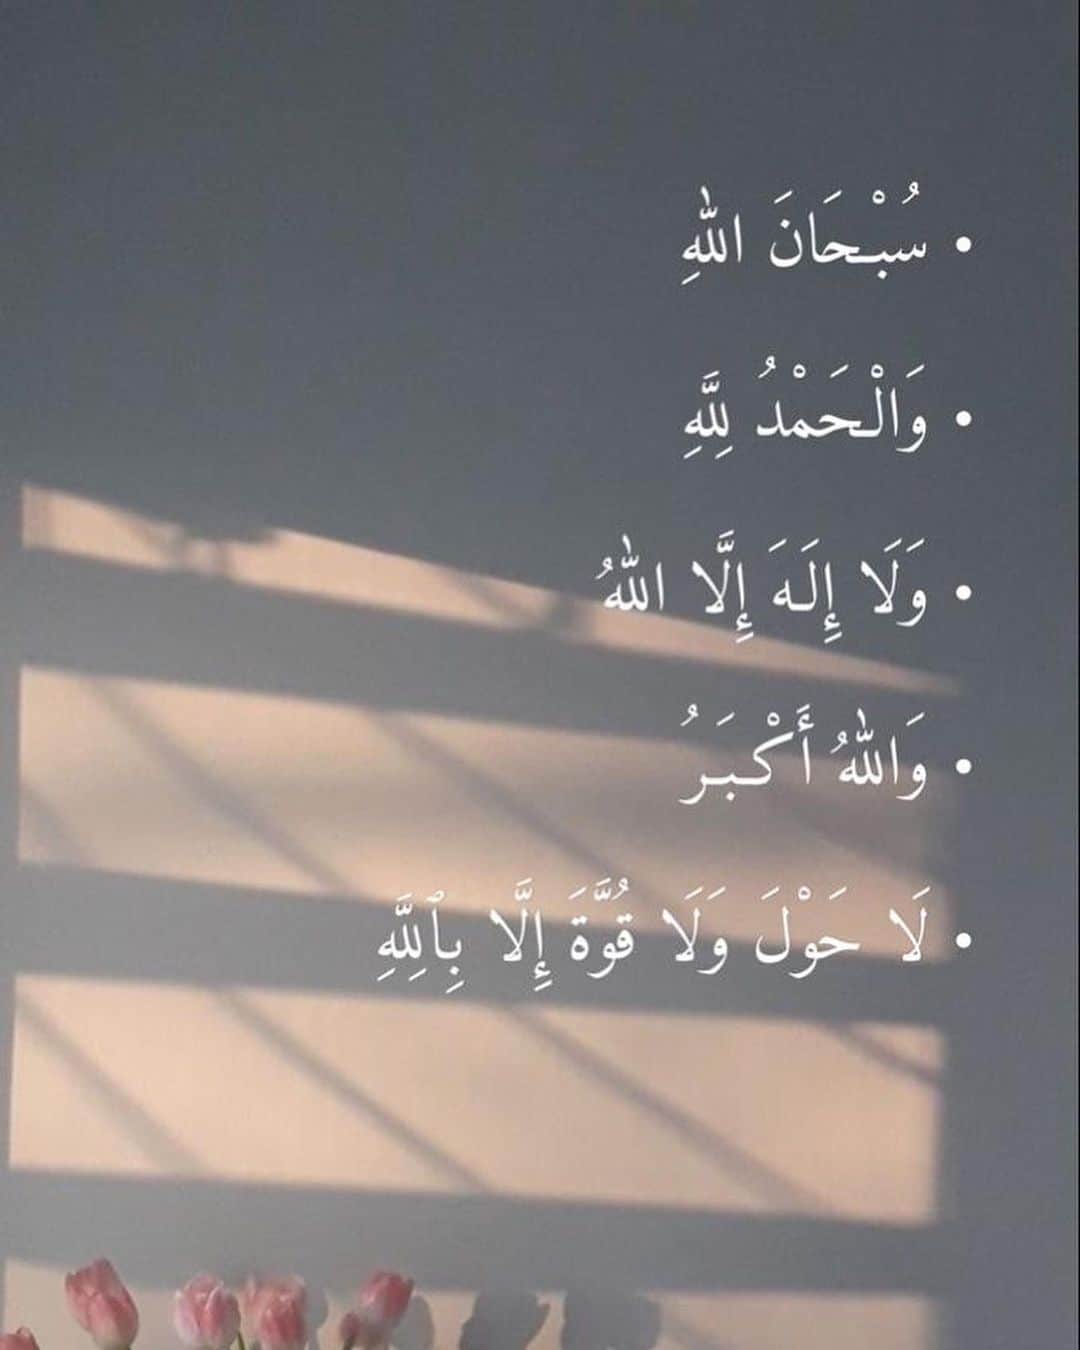 • سُبْحَانَ اللهِ
• وَالْحَمْدُ لِلَّهِ
• وَلَا إِلَهَ إِلَّا اللهُ
• وَاللهُ أَكْبَرُ
• لَا حَوْلَ وَلَا قُوَّةَ إِلَّا بِٱللَّهِ